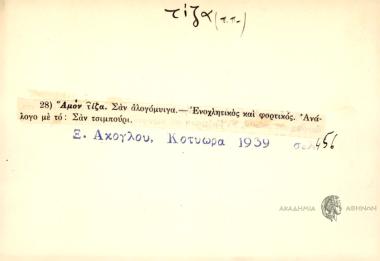 τίζα (τ.τ.)
28) Ἀμὸν τίζα. Σὰν ἀλογόμυιγα.— Ἐνοχλητικὸς καὶ φορτικός. Ἀνά-
λογο μὲ τό: Σὰν τσιμπούρι.
Ξ. Ακογλου, Κοτυωρα 1939 σελ. 456
ΑΚΑΔΗΜΙΑ ΑΘΗΝΩΝ